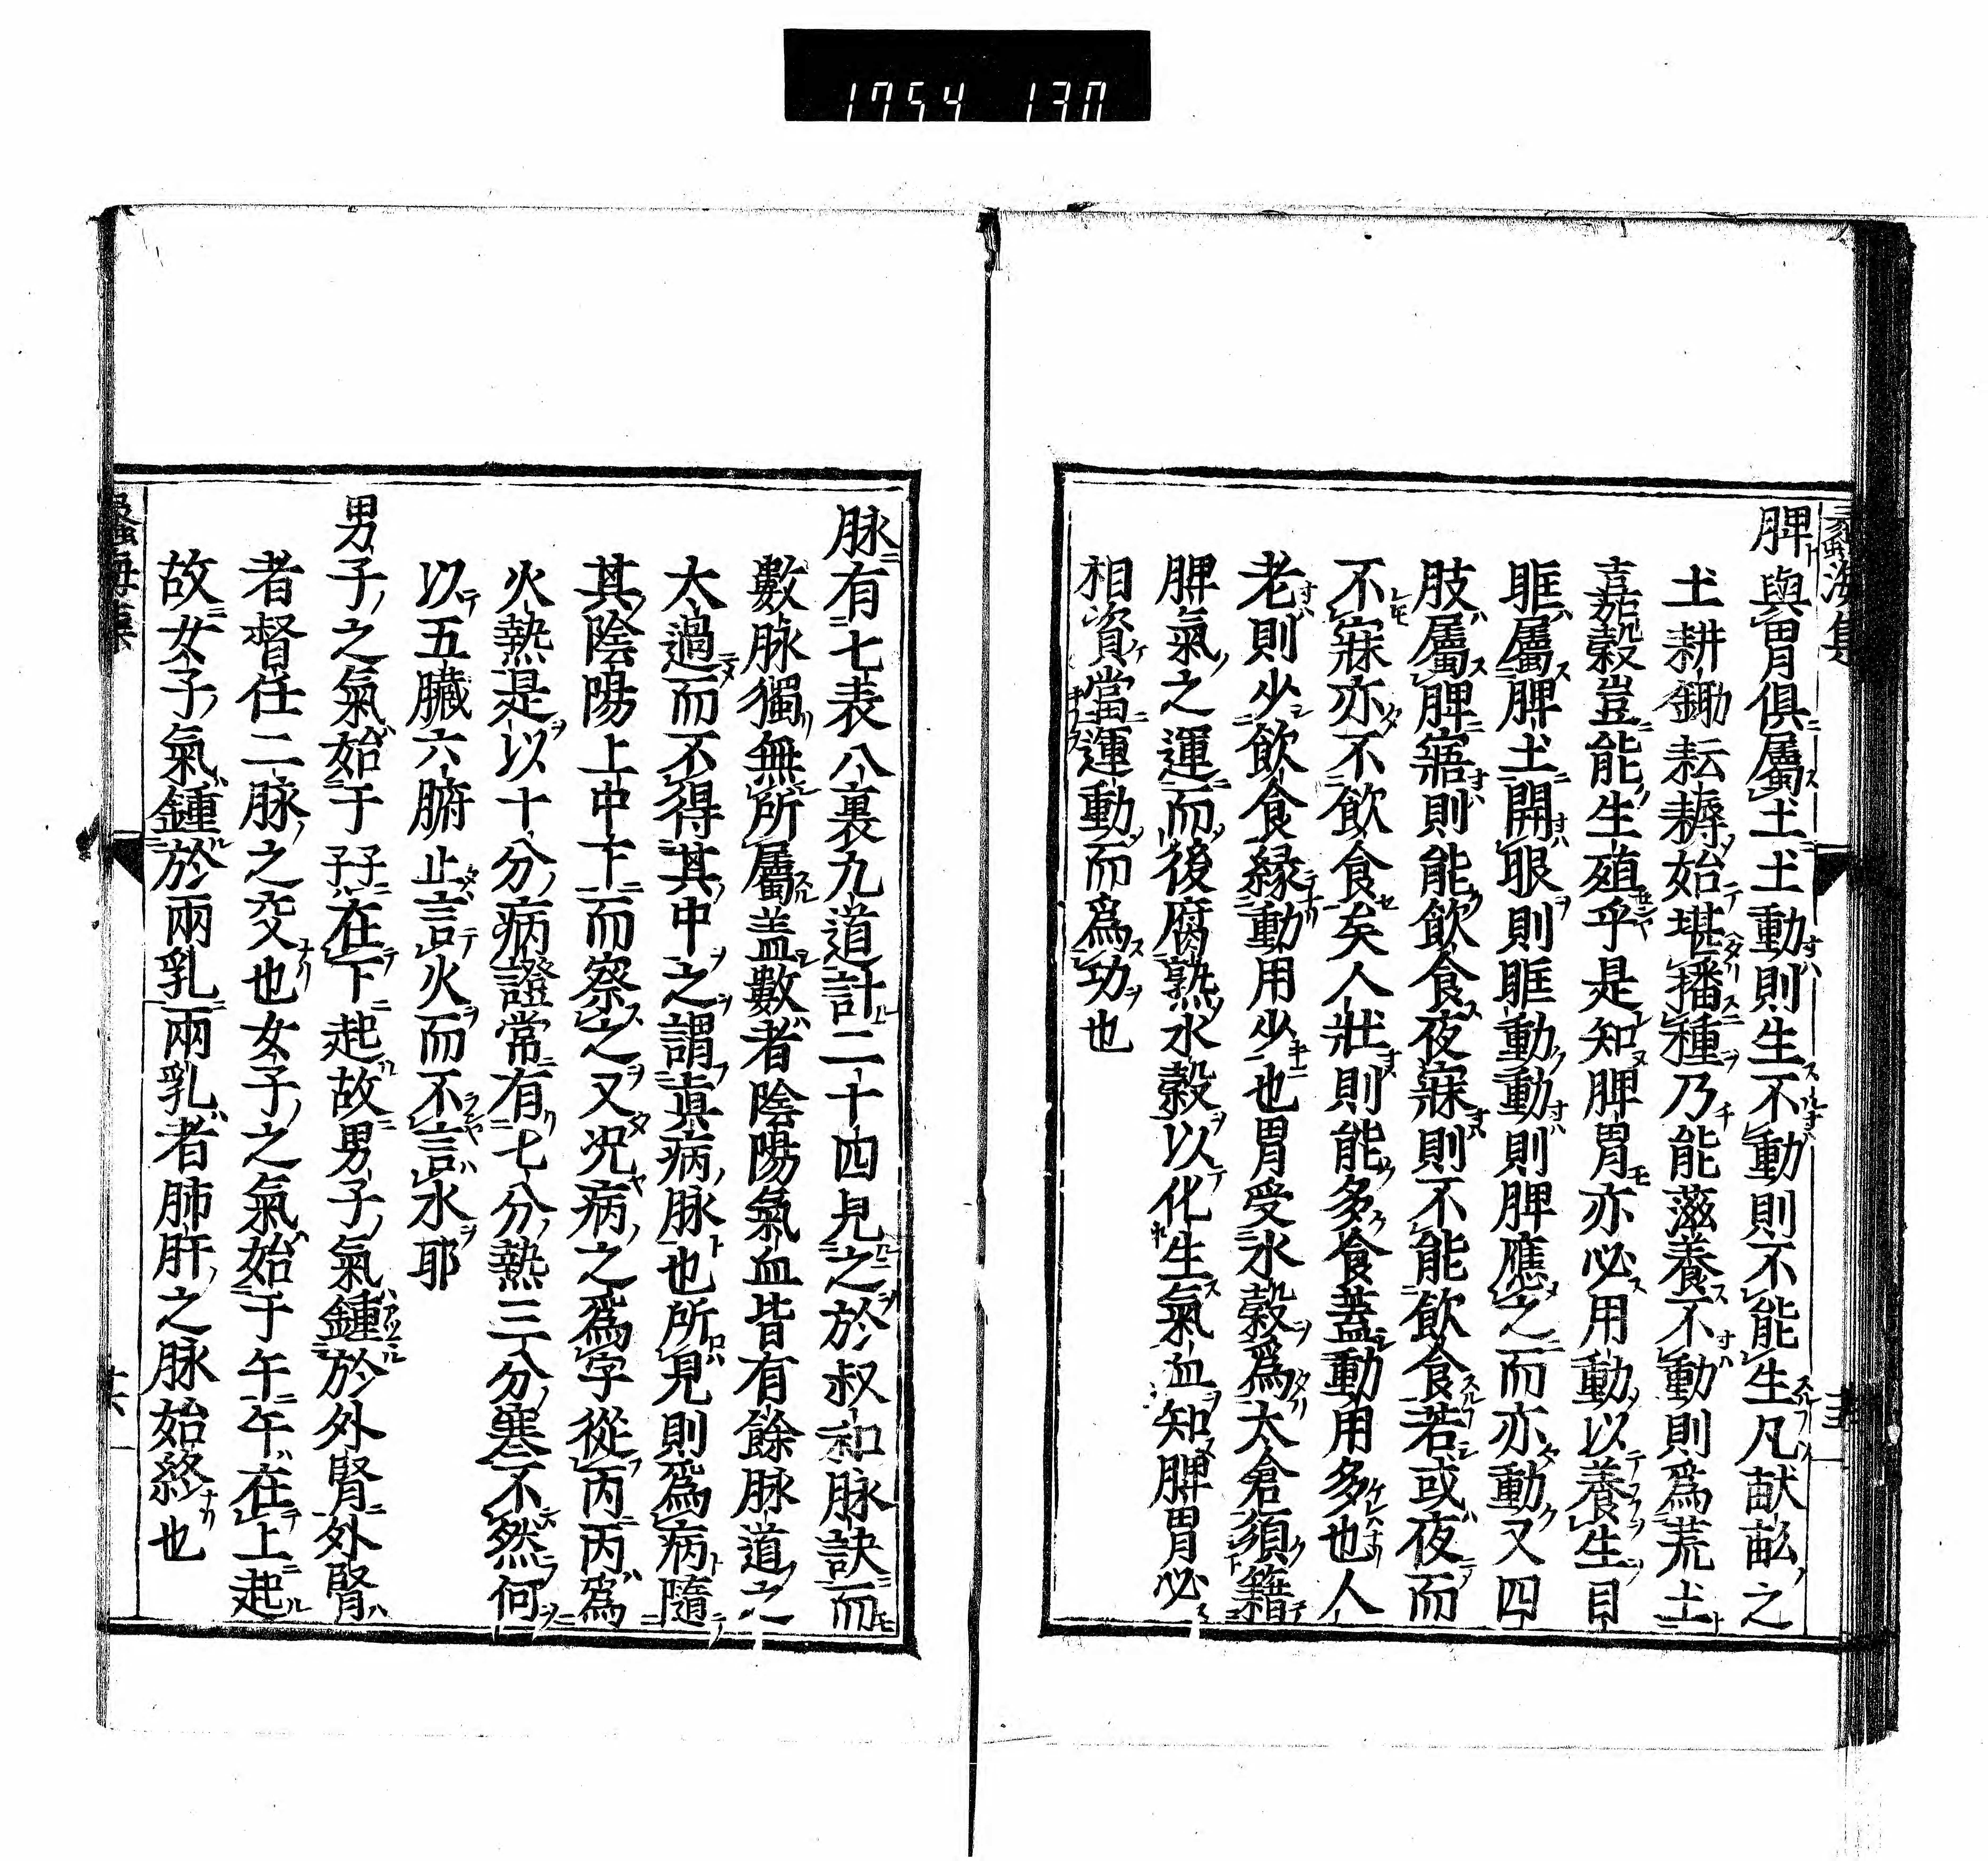 1754 130
蠡海集
脾與胃俱屬土土動則生不動則不能生凡畎畝之
土耕鋤耘耨始堪播種乃能滋養不動則爲荒土
嘉穀豈能生殖乎是知脾胃亦必用動以養生目
眶屬脾土開眼則眶動動則脾應之而亦動又四
肢屬脾寤則能飲食夜寐則不能飲食若或夜而
不寐亦不飲食矣人壯則能多食蓋動用多也人
老則少飲食縁動用少也胃受水穀爲太倉須籍
脾氣之運而後腐熟水穀以化生氣血知脾胃必
相資當運動而爲功也
脉有七表八裏九道計二十四見之於叔和脉訣而
數脉獨無所屬盖數者陰陽氣血皆有餘脉道之
太過而不得其中之謂真病脉也所見則爲病隨
其陰陽上中下而察之又况病之爲字從丙丙爲
火熱是以十分病證常有七分熱三分寒不然何
以五臟六腑止言火而不言水耶
男子之氣始于子子在下起故男子氣鍾於外腎外腎
者督任二脉之交也女子之氣始于午午在上起
故女子氣鍾於兩乳兩乳者肺肝之脉始終也
蠡海集